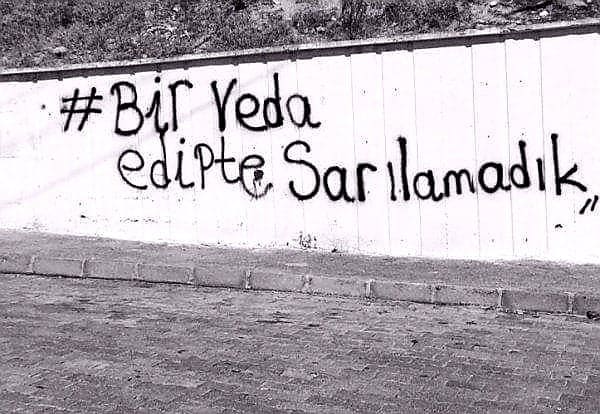 #Bir Veda
edipte Sarılamadık,,